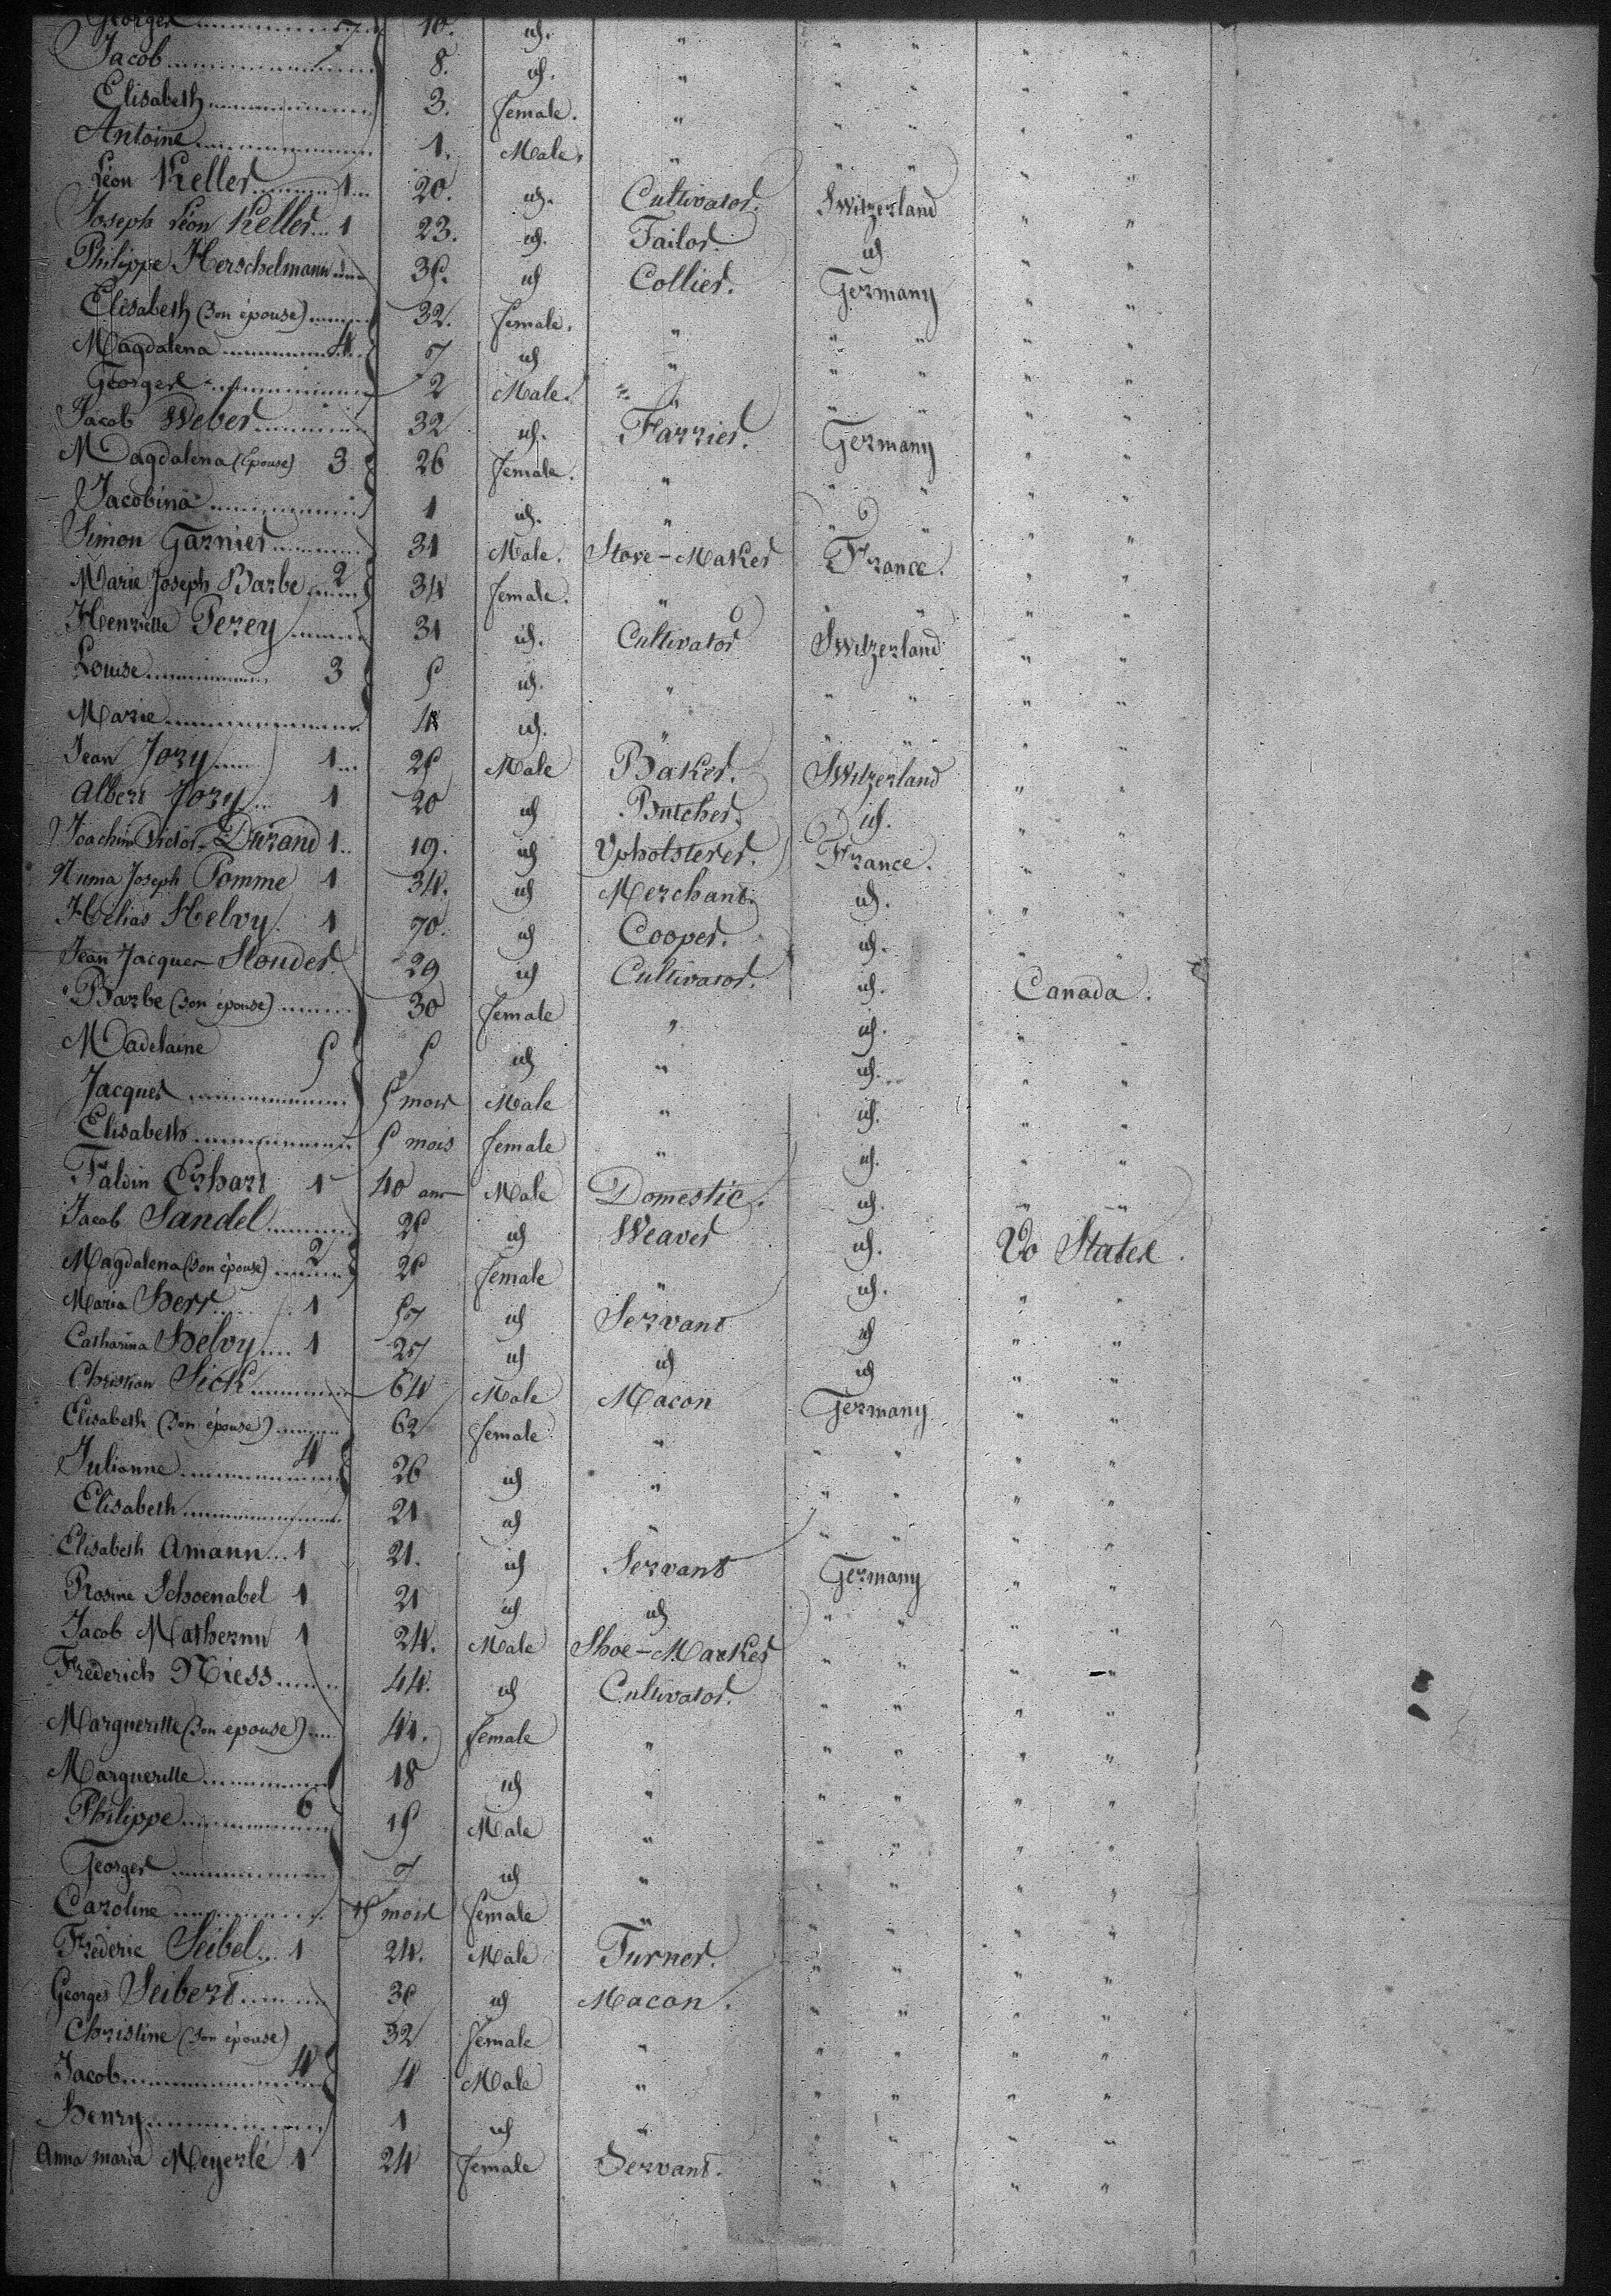 Georges 7 10. id. " " " " "
Jacob 8. id. " " " " "
Elisabeth 3. female. " " " " "
Antoine 1. Male. " " " " "
Léon Keller 1 20. id. Cultivator. Switzerland " "
Joseph Léon Keller 1 23. id. Tailor. id " "
Philippe Herschelmann 35. id Collier. Germany " "
Elisabeth (son épouse) 32. female. " " " " "
Magdalena 4 7 id " " " " "
Georges 2 Male. " " " " "
Jacob Weber 32 id. Farrier. Germany " "
Magdalena (épouse) 3 26 female. " " " " "
Jacobina 1 id. " " " " "
Simon Garnier 31 Male. Stove-Maker France. " "
Marie Joseph Barbe 2 34 female. " " " " "
Henriette Perey 31 id. Cultivator Switzerland " "
Louise 3 5 id. " " " " "
Marie 4 id. " " " " "
Jean Jory 1 25 Male Baker. Switzerland " "
Albert Jory 1 20 id Butcher. id. " "
Joachim Victor Durand 1 19. id Upholsterer. France. " "
Numa Joseph Pomme 1 34. id Merchant. id. " "
Hélias Helvy 1 70. id Cooper. id. " "
Jean Jacques Stouder 29 id Cultivator. id. Canada.
Barbe (son épouse) 30 female " id. " "
Madelaine 5 5 id " id. " "
Jacques 5 mois Male " id. " "
Elisabeth 5 mois female " id. " "
Faldin Erhart 1 40 ans Male Domestic. id. " "
Jacob Sandel 25 id Weaver id. Uo States.
Magdalena (son épouse) 2 25 female " id. " "
Maria Herr 1 57 id Servant id " "
Catharina Helvy 1 27 id id id " "
Christian Sick 64 Male Macon Germany " "
Elisabeth (son épouse) 62 female " " " " "
Julianne 4 26 id " " " " "
Elisabeth 21 id " " " " "
Elisabeth Amann 1 21. id Servant Germany " "
Rosine Schoenabel 1 21 id id " " " "
Jacob Mathernn 1 24. Male Shoe-Marker " " " "
Fréderich Niess 44. id Cultivator. " " " "
Margueritte (son épouse) 41. female " " " " "
Margueritte 18 id " " " " "
Philippe 6 15 Male " " " " "
Georges 7 id " " " " "
Caroline 15 mois female " " " " "
Fréderic Seibel 1 24. Male Turner. " " " "
Georges Seibert 35 id Macon. " " " "
Christine (son épouse) 32 female " " " " "
Jacob 4 4 Male " " " " "
Henry 1 id " " " " "
Anna Maria Meyerlé 1 24 female Servant. " " " "